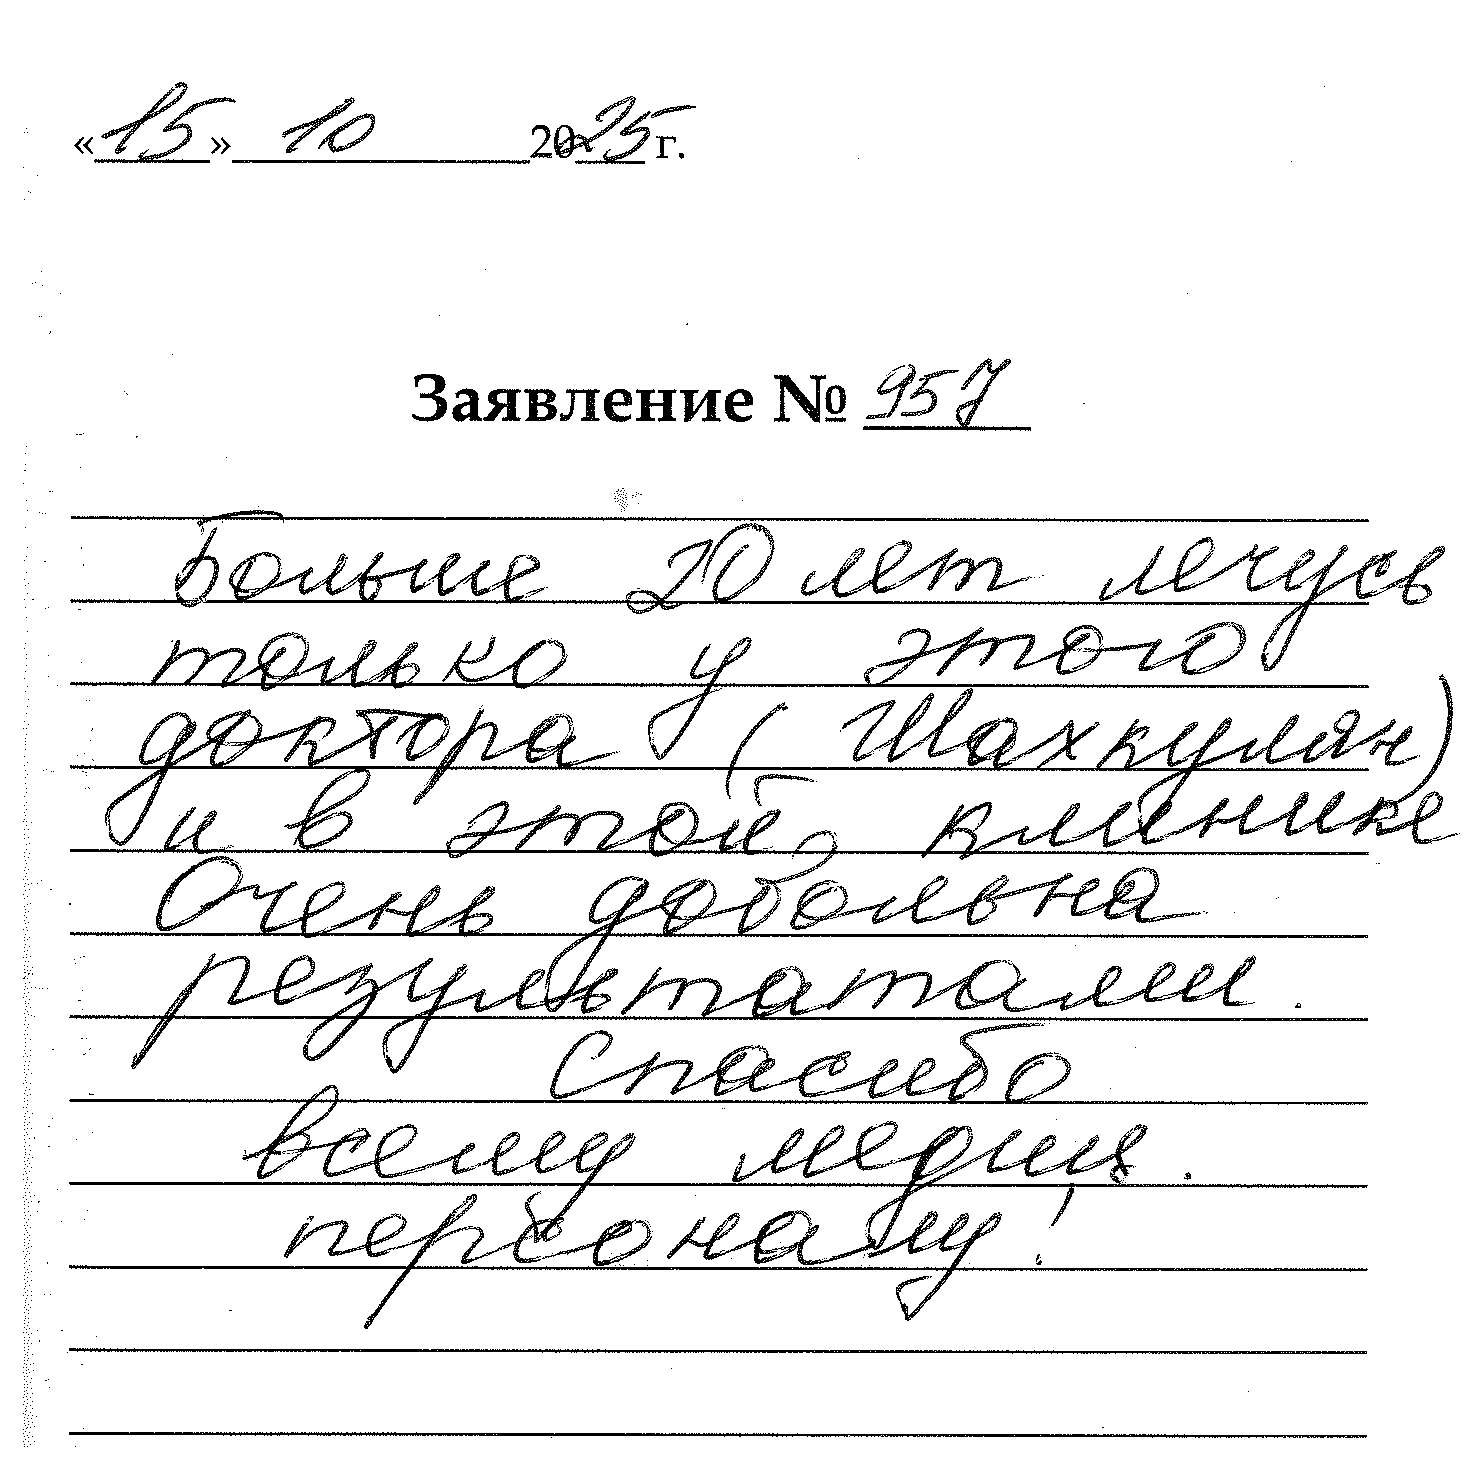 «15» 10 2025 г.
Заявление № 957
Больше 20 лет лечусь
только у этого
доктора (Шахкулян)
и в этой клинике
Очень довольна
результатами.
Спасибо
всему медиц.
персоналу!